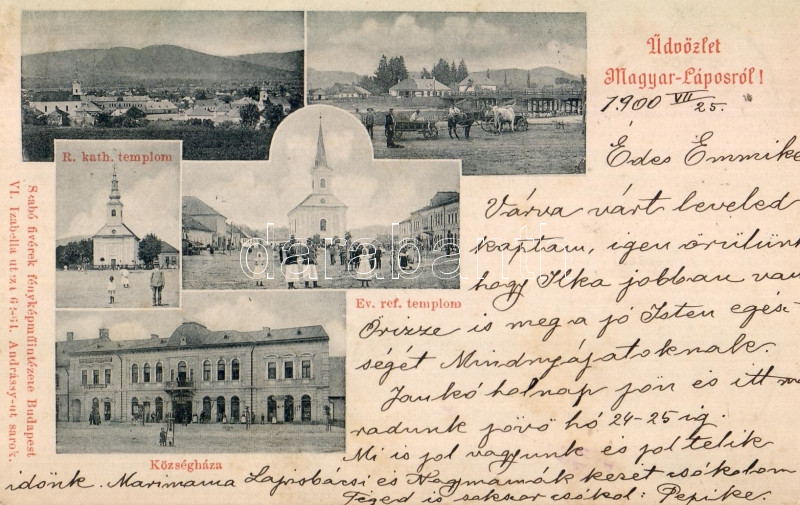 Üdvözlet
Magyar-Láposról!
1900 VII 25.
R. kath. templom
Ev. ref. templom
Községháza
Szabó fivérek fényképműintézete Budapest
VI. Izabella utcza 65-ól. Andrássy-ut sarok.
darabanth
Édes Emmike
Várva várt leveled
kaptam, igen örülünk
hogy Ilka jobban van
Őrizze is meg a jó Isten egés-
ségét Mindnyájatoknak.
Jankó holnap jön és itt
radunk jövő hó 24-25 ig.
Mi is jol vagyunk és jol telik
idönk. Marimama Lajosbácsi és Nagmamák kezét csókolom
Téged is sokszor csókol: Pepike.